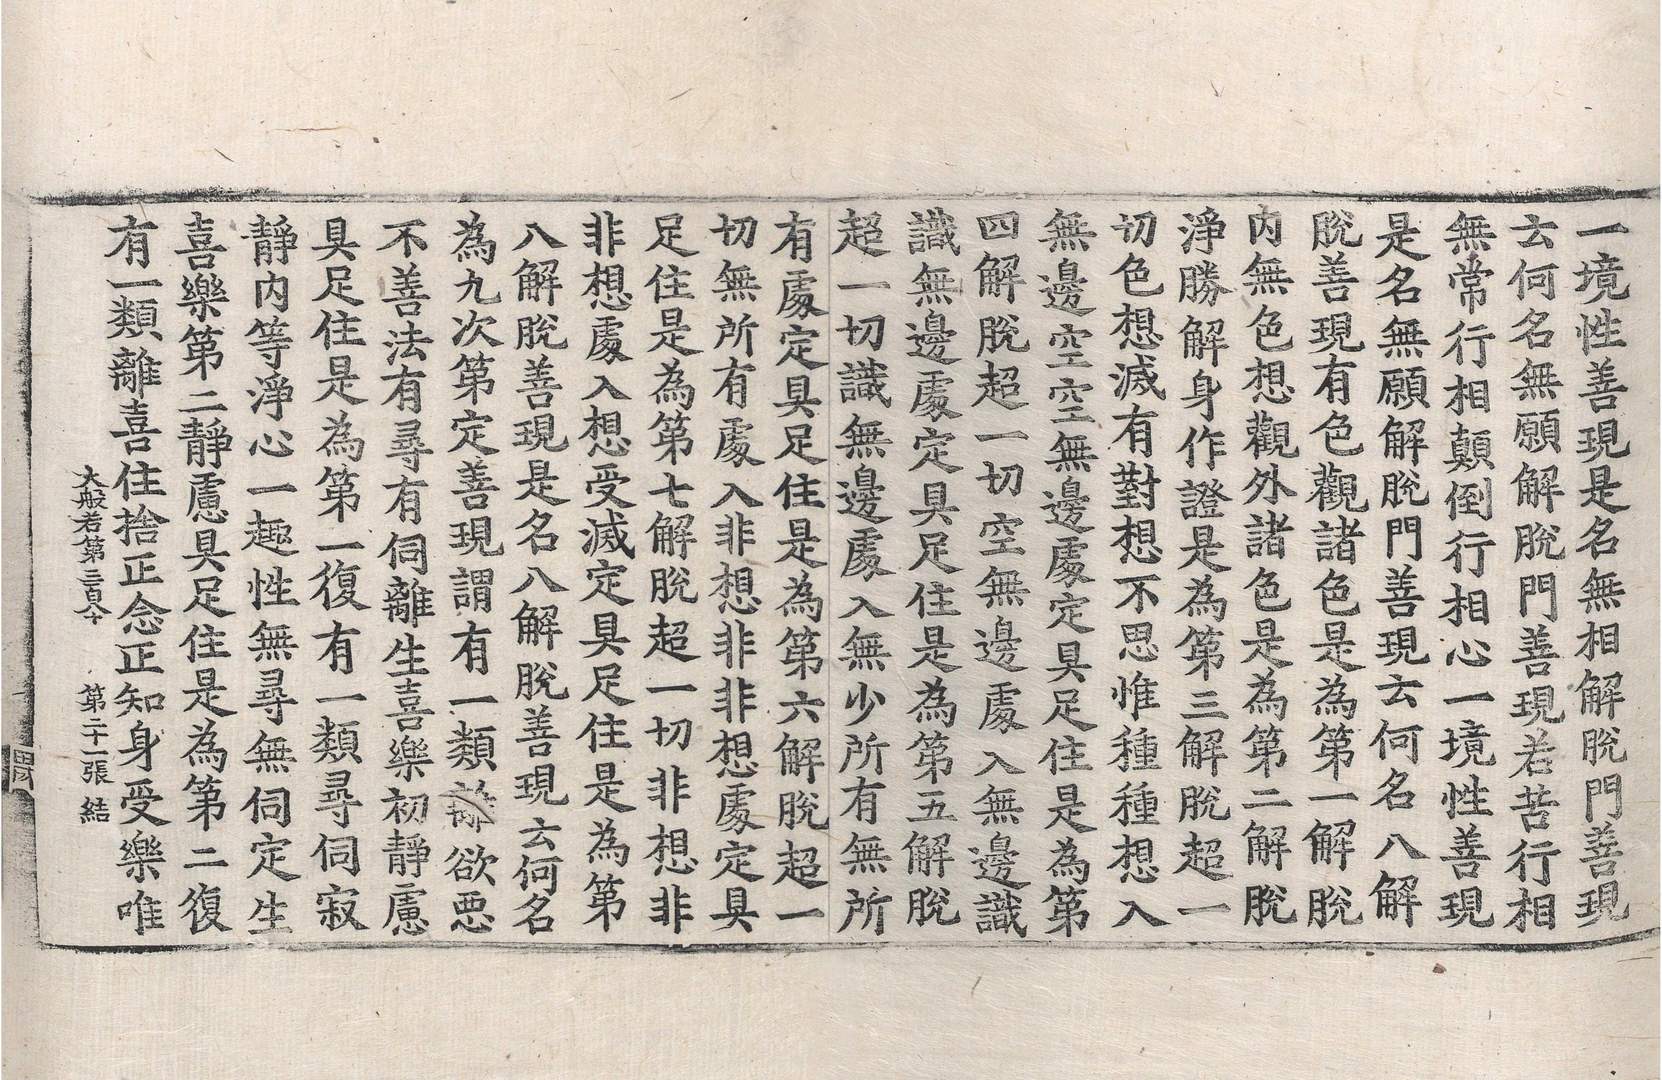 一境性善現是名無相解脫門善現
云何名無願解脫門善現若苦行相
無常行相顛倒行相心一境性善現
是名無願解脫門善現云何名八解
脫善現有色觀諸色是為第一解脫
內無色想觀外諸色是為第二解脫
淨勝解身作證是為第三解脫超一
切色想滅有對想不思惟種種想入
無邊空空無邊處定具足住是為第
四解脫超一切空無邊處入無邊識
識無邊處定具足住是為第五解脫
超一切識無邊處入無少所有無所
有處定具足住是為第六解脫超一
切無所有處入非想非非想處定具
足住是為第七解脫超一切非想非
非想處入想受滅定具足住是為第
八解脫善現是名八解脫善現云何名
為九次第定善現謂有一類離欲惡
不善法有尋有伺離生喜樂初靜慮
具足住是為第一復有一類尋伺寂
靜內等淨心一趣性無尋無伺定生
喜樂第二靜慮具足住是為第二復
有一類離喜住捨正念正知身受樂唯
大般若第三百八十 第二十一張 結